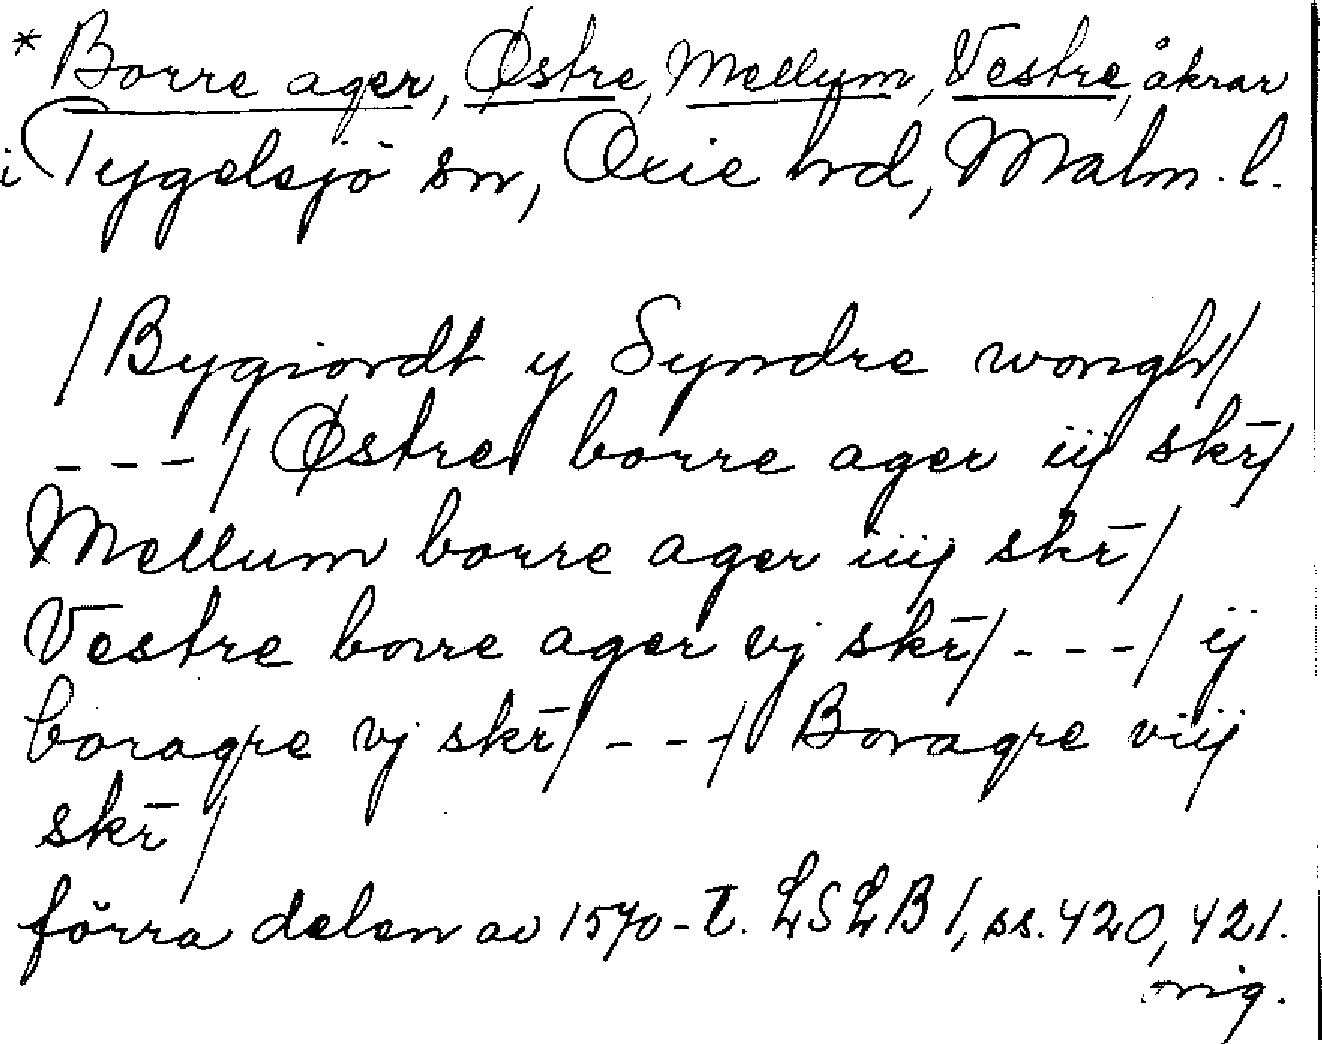 * Borre ager, Østre, Mellum, Vestre, åkrar
i Tygelsjö sn, Oxie hd, Malm. l.
/ Bygiordt y Syndre wongh /
--- / Østre borre ager iij skr̄ /
Mellum borre ager iiij skr̄ /
Vestre borre ager vj skr̄ / --- / ij
boragre vj skr̄ / --- / Boragre viij
skr̄ /
förra delen av 1570-t. LSLB 1, ss. 420, 421.
orig.